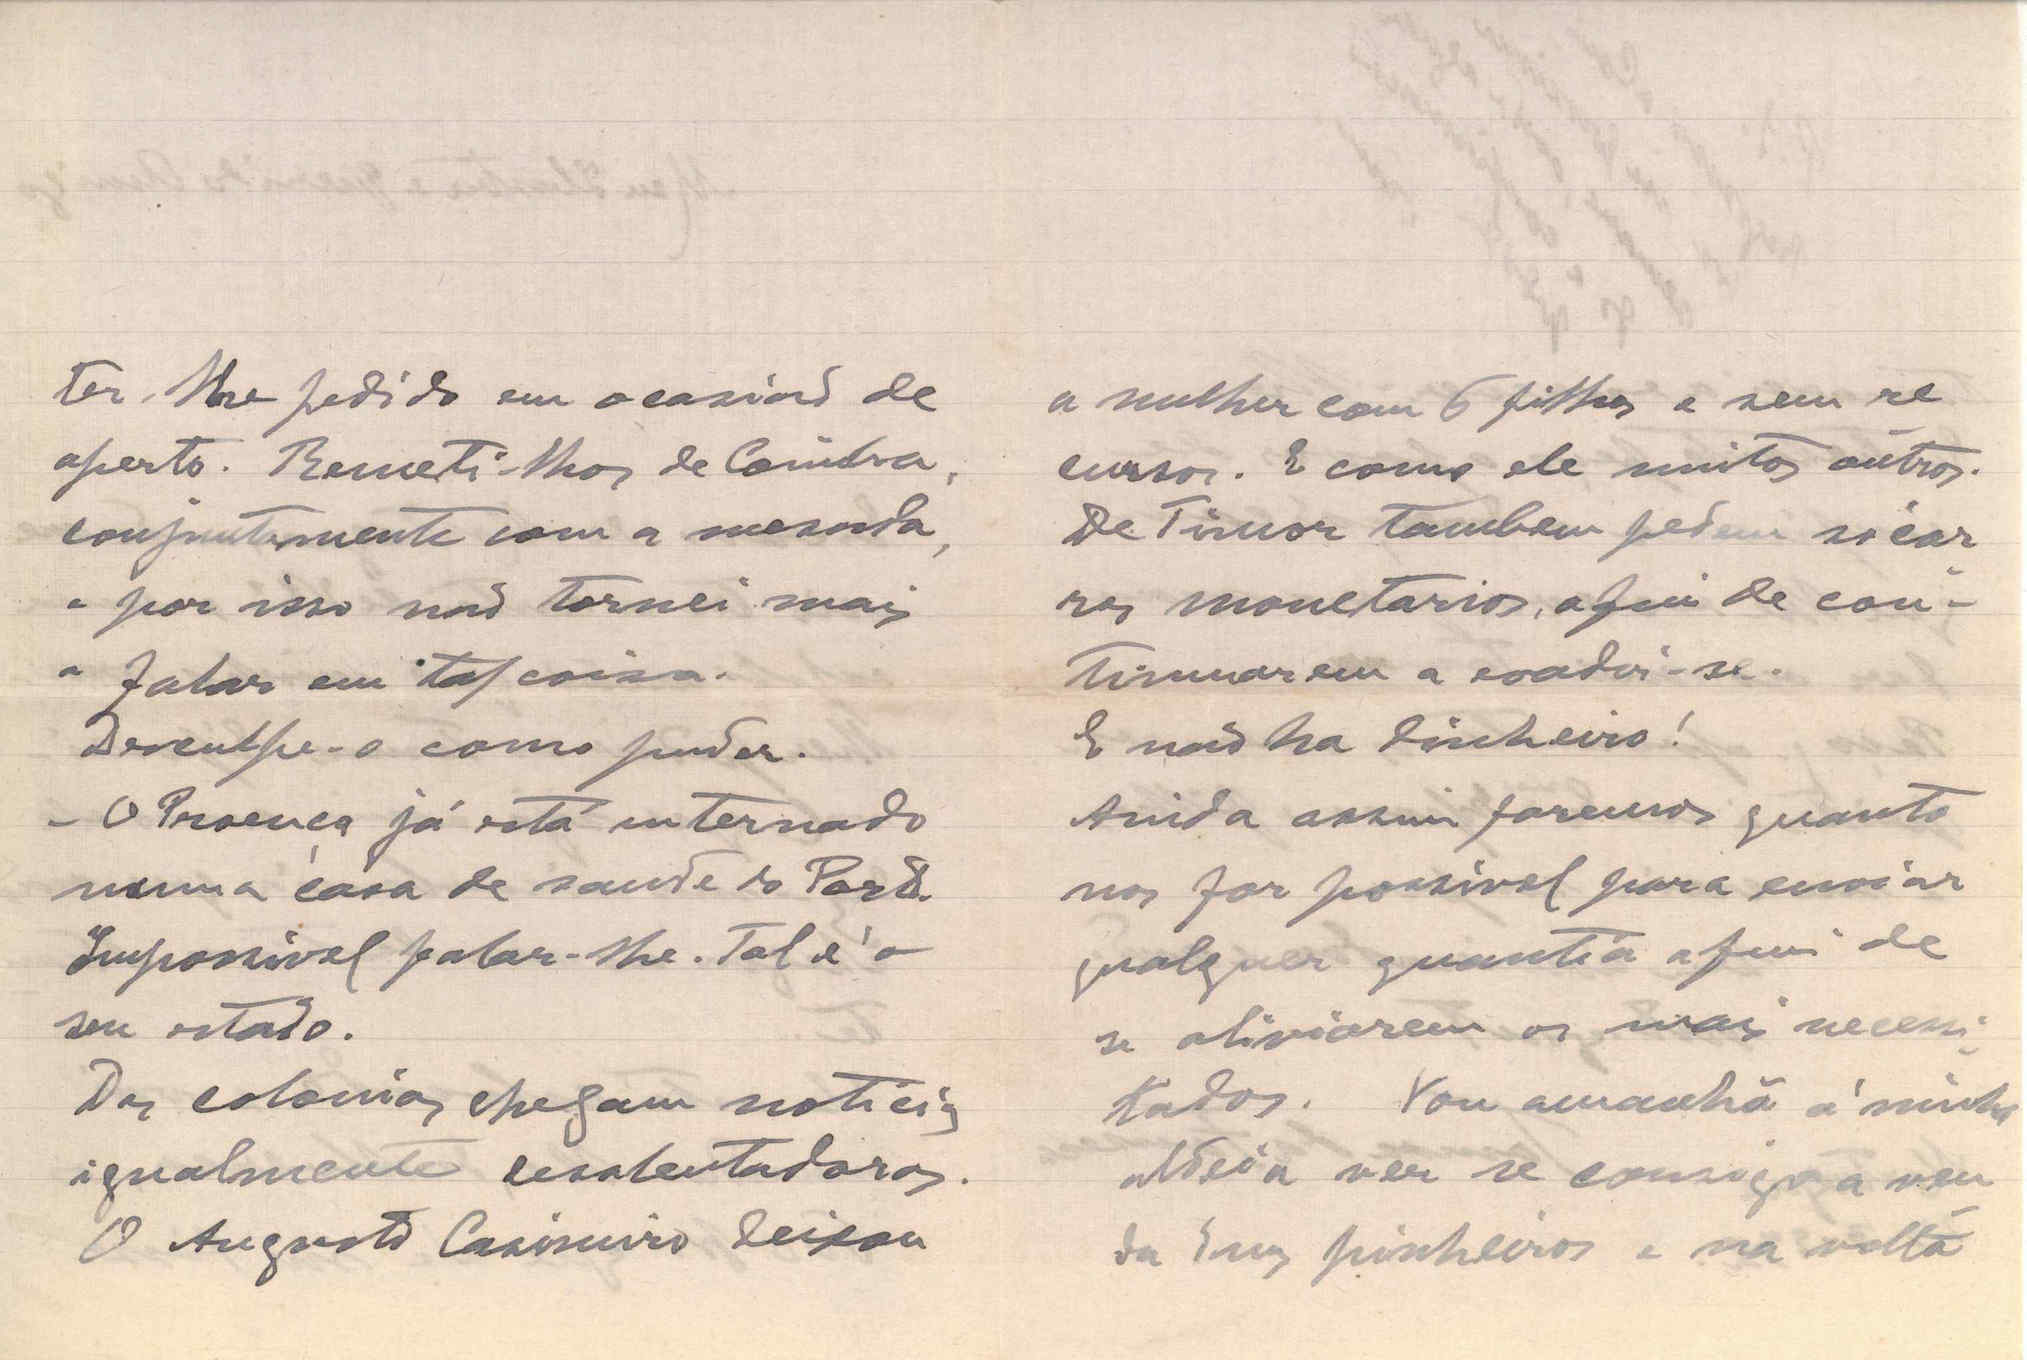 ter-lhe pedido em ocasião de
aperto. Remeti-lhos de Coimbra,
conjuntamente com a mesada,
e por isso não tornei mais
a falar em tal coisa.
Desculpe-o como puder.
- O Proença já está internado
numa casa de saude do Porto.
Impossivel falar-lhe. Tal é o
seu estado.
Das colonias chegam noticias
igualmente desalentadoras.
O Augusto Casimiro deixou
a mulher com 6 filhos e sem re
cursos. E como ele muitos outros.
De Timor tambem pedem socor
ros monetarios, afim de con-
tinuarem a evadir-se.
E não ha dinheiro!
Ainda assim faremos quanto
nos for possivel para enviar
qualquer quantia afim de
se aliviarem os mais necessi
tados. Vou amanhã á minha
aldeia ver se consigo a ven
da duns pinheiros e na volta